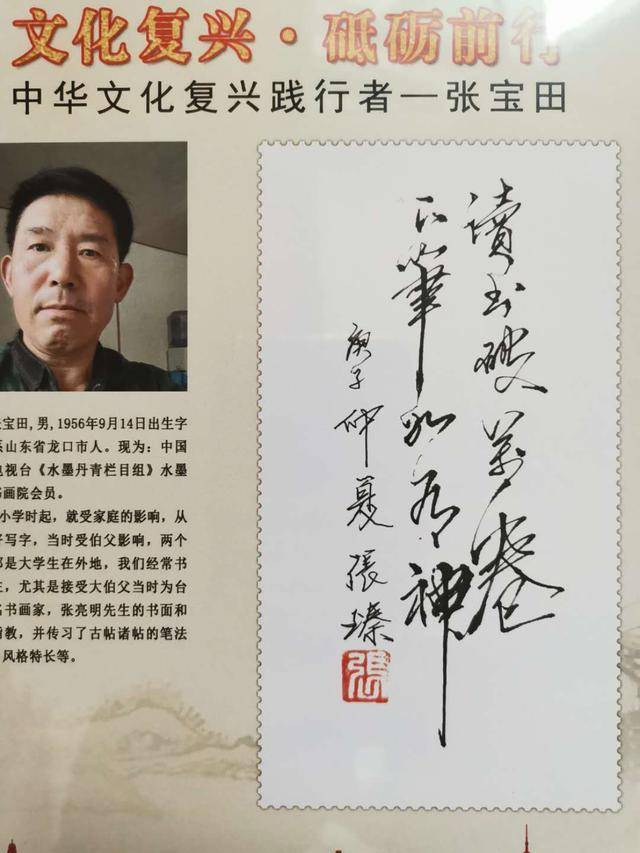 文化复兴·砥砺前行
中华文化复兴践行者—张宝田
张宝田,男,1956年9月14日出生字
系山东省龙口市人。现为：中国
电视台《水墨丹青栏目组》水墨
书画院会员。
小学时起，就受家庭的影响，从
写字，当时受伯父影响，两个
都是大学生在外地，我们经常书
，尤其是接受大伯父当时为台
名书画家，张亮明先生的书面和
指教，并传习了古帖诸帖的笔法
风格特长等。
讀书破萬卷
下筆如有神
庚子仲夏張臻
張